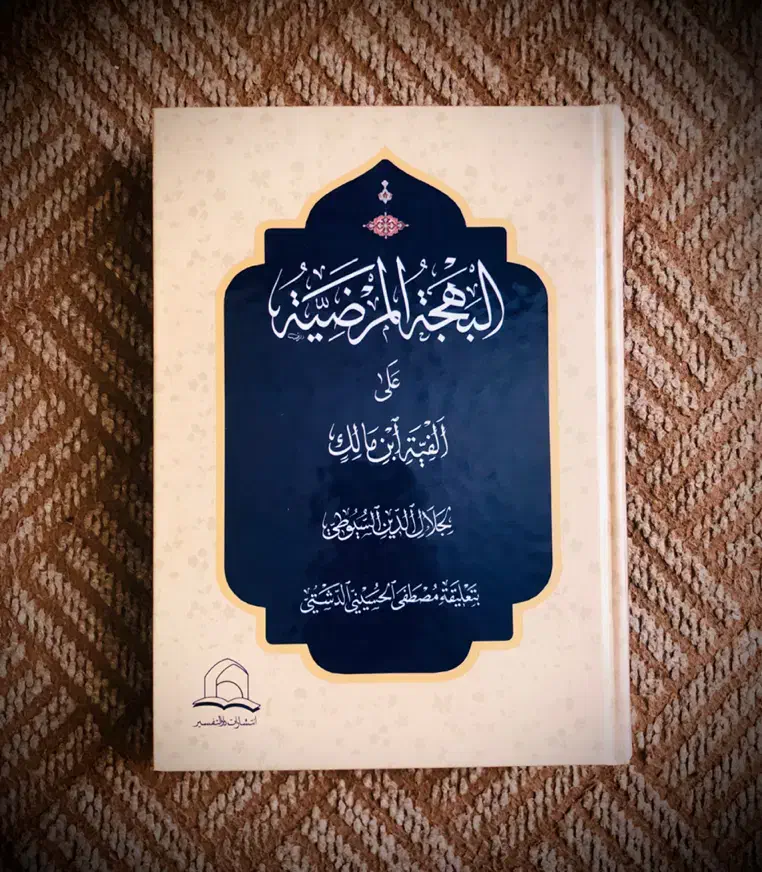 البَهْجَةُ المَرْضِيَّةُ
عَلَى
اَلْفِيَّةِ ٱبْنِ مَالِكٍ
لِجَلَالِ الدّينِ السُّيُوطِيّ
بِتَعْلِيقَةِ مُصْطَفَى الْحُسَيْنِيّ الدَّشْتِيّ
انتشارات دارالتفسیر